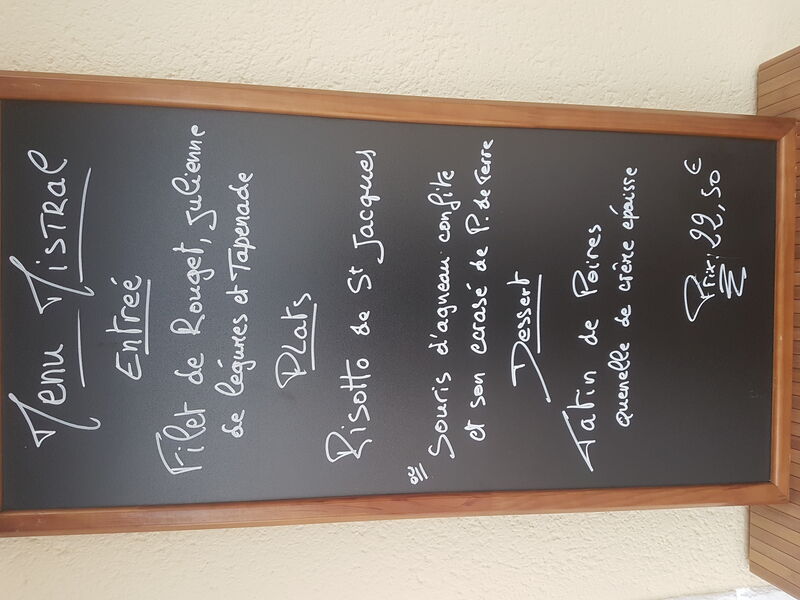 Menu Mistral
Entreé
Filet de Rouget, Julienne
de légumes et Tapenade
Plats
Risotto de St Jacques
ou
Souris d'agneau confite
et son ecrasé de P. de Terre
Dessert
Tatin de Poires
quenelle de crème épaisse
Prix: 22,50€